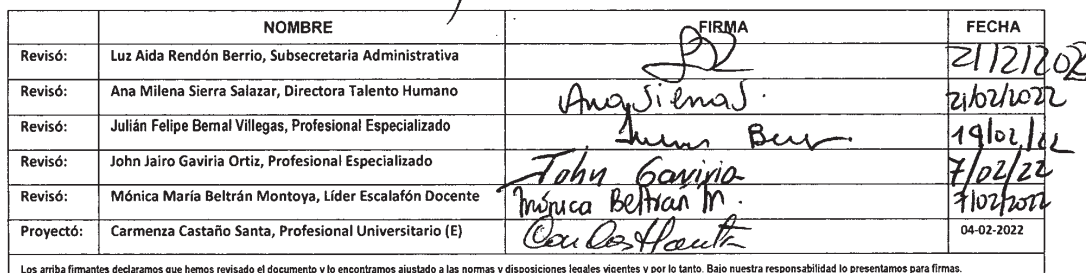 NOMBRE FIRMA FECHA
Revisó: Luz Aida Rendón Berrio, Subsecretaria Administrativa 21/2/202
Revisó: Ana Milena Sierra Salazar, Directora Talento Humano Ana Sierra S. 21/02/2022
Revisó: Julián Felipe Bernal Villegas, Profesional Especializado 19/02/22
Revisó: John Jairo Gaviria Ortiz, Profesional Especializado John Gaviria 7/02/22
Revisó: Mónica María Beltrán Montoya, Líder Escalafón Docente Mónica Beltrán M. 7/02/2022
Proyectó: Carmenza Castaño Santa, Profesional Universitario (E) 04-02-2022
Los arriba firmantes declaramos que hemos revisado el documento y lo encontramos ajustado a las normas y disposiciones legales vigentes y por lo tanto. Bajo nuestra responsabilidad lo presentamos para firmas.